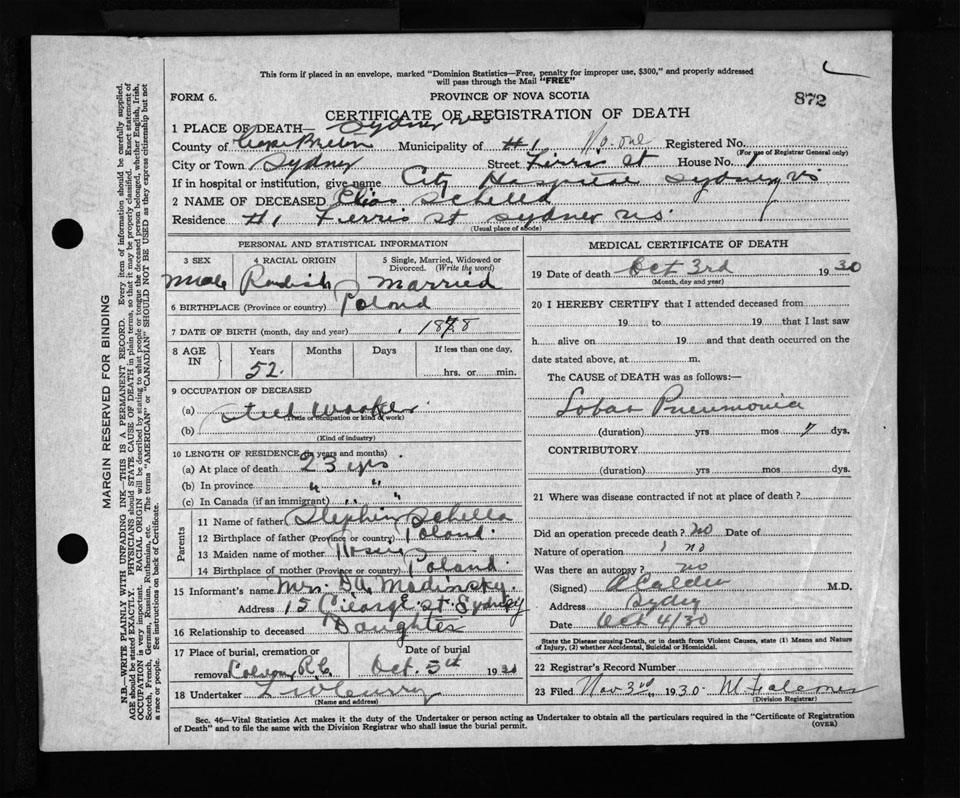 This form if placed in an envelope, marked "Dominion Statistics—Free, penalty for improper use, $300," and properly addressed
will pass through the Mail "FREE"
FORM 6.
PROVINCE OF NOVA SCOTIA
872
CERTIFICATE OF REGISTRATION OF DEATH
1 PLACE OF DEATH— Sydney
County of Cape Breton Municipality of #1 Registered No.
(For use of Registrar General only)
City or Town Sydney Street Ferris St House No. 1
If in hospital or institution, give name City Hospital Sydney NS
2 NAME OF DECEASED Elias Schella
Residence #1 Ferris St Sydney NS.
(Usual place of abode)
PERSONAL AND STATISTICAL INFORMATION
3 SEX 4 RACIAL ORIGIN 5 Single, Married, Widowed or
Divorced. (Write the word)
Male Married
6 BIRTHPLACE (Province or country) Poland
7 DATE OF BIRTH (month, day and year) 1878
8 AGE IN Years Months Days If less than one day,
52. hrs. or min.
9 OCCUPATION OF DECEASED
(a) Steel Worker
(Trade or occupation or kind of work)
(b)
(Kind of industry)
10 LENGTH OF RESIDENCE (in years and months)
(a) At place of death 23 yrs.
(b) In province " "
(c) In Canada (if an immigrant) " "
Parents
11 Name of father Stephen Schella
12 Birthplace of father (Province or country) Poland.
13 Maiden name of mother
14 Birthplace of mother (Province or country) Poland
15 Informant's name Mrs. D.A. Modinsky.
Address 15 George St. Sydney
16 Relationship to deceased Daughter
17 Place of burial, cremation or removal Date of burial
R.C. Oct. 5th 1930
18 Undertaker
(Name and address)
MEDICAL CERTIFICATE OF DEATH
19 Date of death Oct 3rd 1930
(Month, day and year)
20 I HEREBY CERTIFY that I attended deceased from
19 to 19 that I last saw
h alive on 19 and that death occurred on the
date stated above, at m.
The CAUSE OF DEATH was as follows:—
Lobar Pneumonia
(duration) yrs mos 7 dys.
CONTRIBUTORY
(duration) yrs. mos. dys.
21 Where was disease contracted if not at place of death?
Did an operation precede death? no Date of
Nature of operation no
Was there an autopsy? no
(Signed) Calder M.D.
Address Sydney
Date Oct 4/30
State the Disease causing Death, or in death from Violent Causes, state (1) Means and Nature
of Injury, (2) whether Accidental, Suicidal or Homicidal.
22 Registrar's Record Number
23 Filed Nov 3rd, 1930.
(Division Registrar)
Sec. 46—Vital Statistics Act makes it the duty of the Undertaker or person acting as Undertaker to obtain all the particulars required in the "Certificate of Registration
of Death" and to file the same with the Division Registrar who shall issue the burial permit.
(OVER)
MARGIN RESERVED FOR BINDING
N.B.—WRITE PLAINLY WITH UNFADING INK—THIS IS A PERMANENT RECORD. Every item of information should be carefully supplied.
AGE should be stated EXACTLY. PHYSICIANS should STATE CAUSE OF DEATH in plain terms, so that it may be properly classified. Exact statement of
OCCUPATION is very important. RACIAL ORIGIN will be described by stating to what people or tongue the deceased person belonged, whether English, Irish,
Scotch, French, German, Russian, Ruthenian, etc. The terms "AMERICAN" or "CANADIAN" SHOULD NOT BE USED as they express citizenship but not
a race or people. See instructions on back of Certificate.